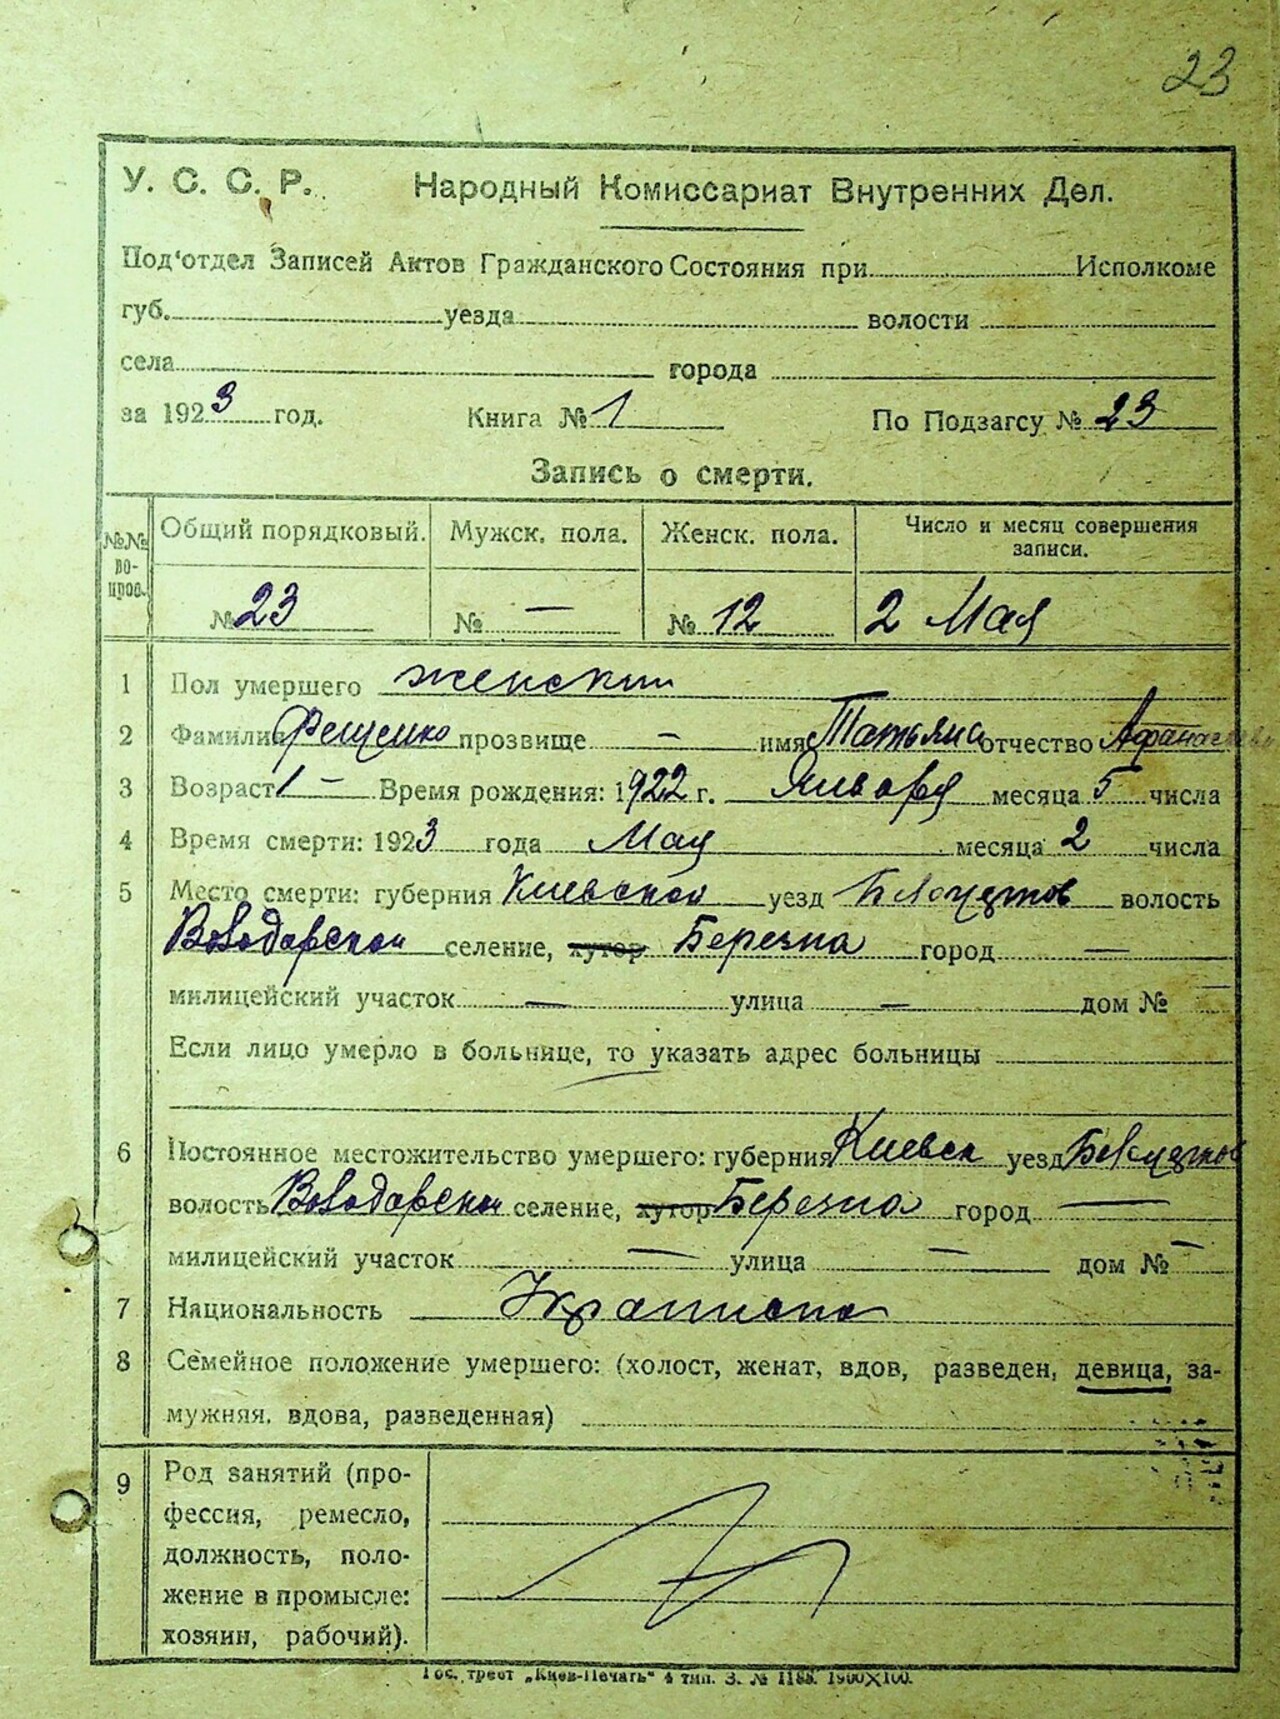 23
У. С. С. Р. Народный Комиссариат Внутренних Дел.
Под'отдел Записей Актов Гражданского Состояния при Исполкоме
губ. уезда волости
села города
за 1923 год. Книга № 1 По Подзагсу № 23
Запись о смерти.
№№ во-прос. Общий порядковый. Мужск. пола. Женск. пола. Число и месяц совершения записи.
№ 23 № — № 12 2 Мая
1 Пол умершего женский
2 Фамилия Фещенко прозвище — имя Татьяна отчество Афанасьевн
3 Возраст 1 — Время рождения: 1922 г. Января месяца 5 числа
4 Время смерти: 1923 года Мая месяца 2 числа
5 Место смерти: губерния Киевской уезд Белоцерков волость
Володарской селение, хутор Березна город —
милицейский участок — улица — дом № —
Если лицо умерло в больнице, то указать адрес больницы
6 Постоянное местожительство умершего: губерния Киевск уезд Белоцерков
волость Володарской селение, хутор Березна город —
милицейский участок — улица — дом № —
7 Национальность Украинка
8 Семейное положение умершего: (холост, женат, вдов, разведен, девица, за-
мужняя, вдова, разведенная)
9 Род занятий (про-
фессия, ремесло,
должность, поло-
жение в промысле:
хозяин, рабочий).
Гос. трест „Киев-Печать" 4 тип. З. № 1188. 1900X100.